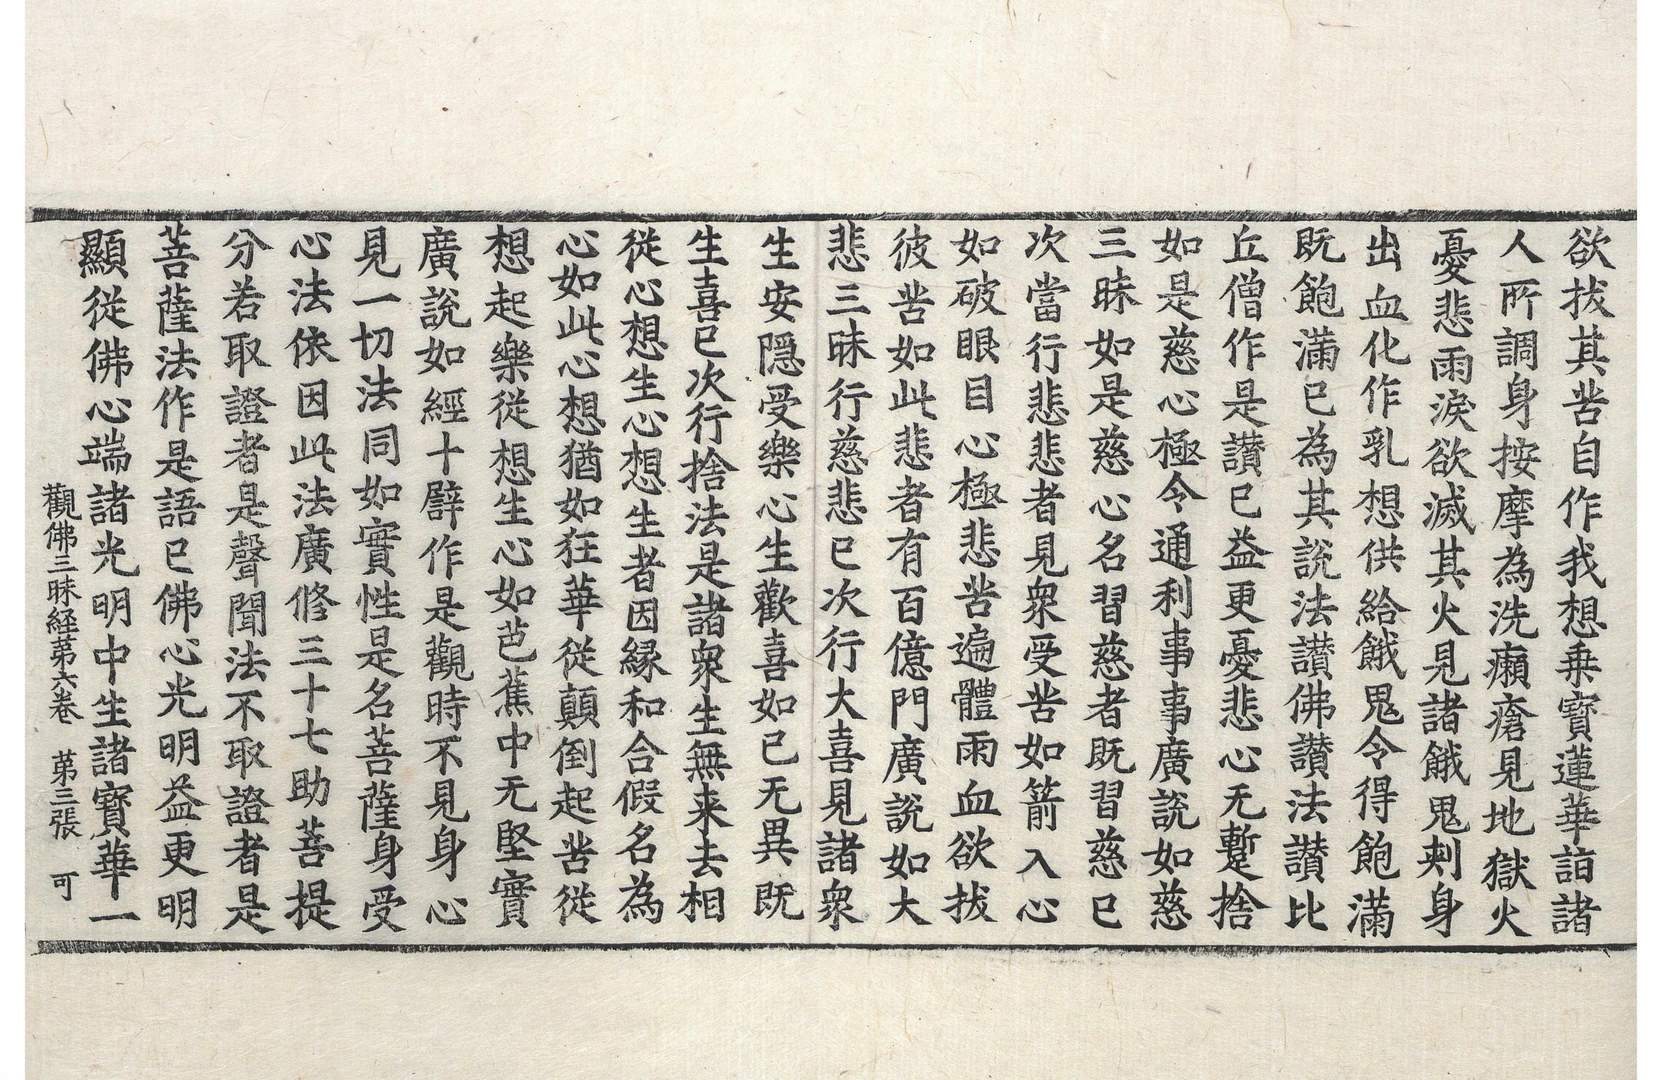 欲拔其苦自作我想乗寶蓮華詣諸
人所調身按摩為洗癩瘡見地獄火
憂悲雨淚欲滅其火見諸餓鬼刺身
出血化作乳想供給餓鬼令得飽滿
既飽滿已為其說法讃佛讃法讃比
丘僧作是讃已益更憂悲心无蹔捨
如是慈心極令通利事事廣說如慈
三昧如是慈心名習慈者既習慈已
次當行悲悲者見衆受苦如箭入心
如破眼目心極悲苦遍體雨血欲拔
彼苦如此悲者有百億門廣說如大
悲三昧行慈悲已次行大喜見諸衆
生安隱受樂心生歡喜如已无異既
生喜已次行捨法是諸衆生無来去相
從心想生心想生者因緣和合假名為
心如此心想猶如狂華從顛倒起苦從
想起樂從想生心如芭蕉中无堅實
廣說如經十譬作是觀時不見身心
見一切法同如實性是名菩薩身受
心法依因此法廣修三十七助菩提
分若取證者是聲聞法不取證者是
菩薩法作是語已佛心光明益更明
顯從佛心端諸光明中生諸寶華一
觀佛三昧経第六卷　第三張　可